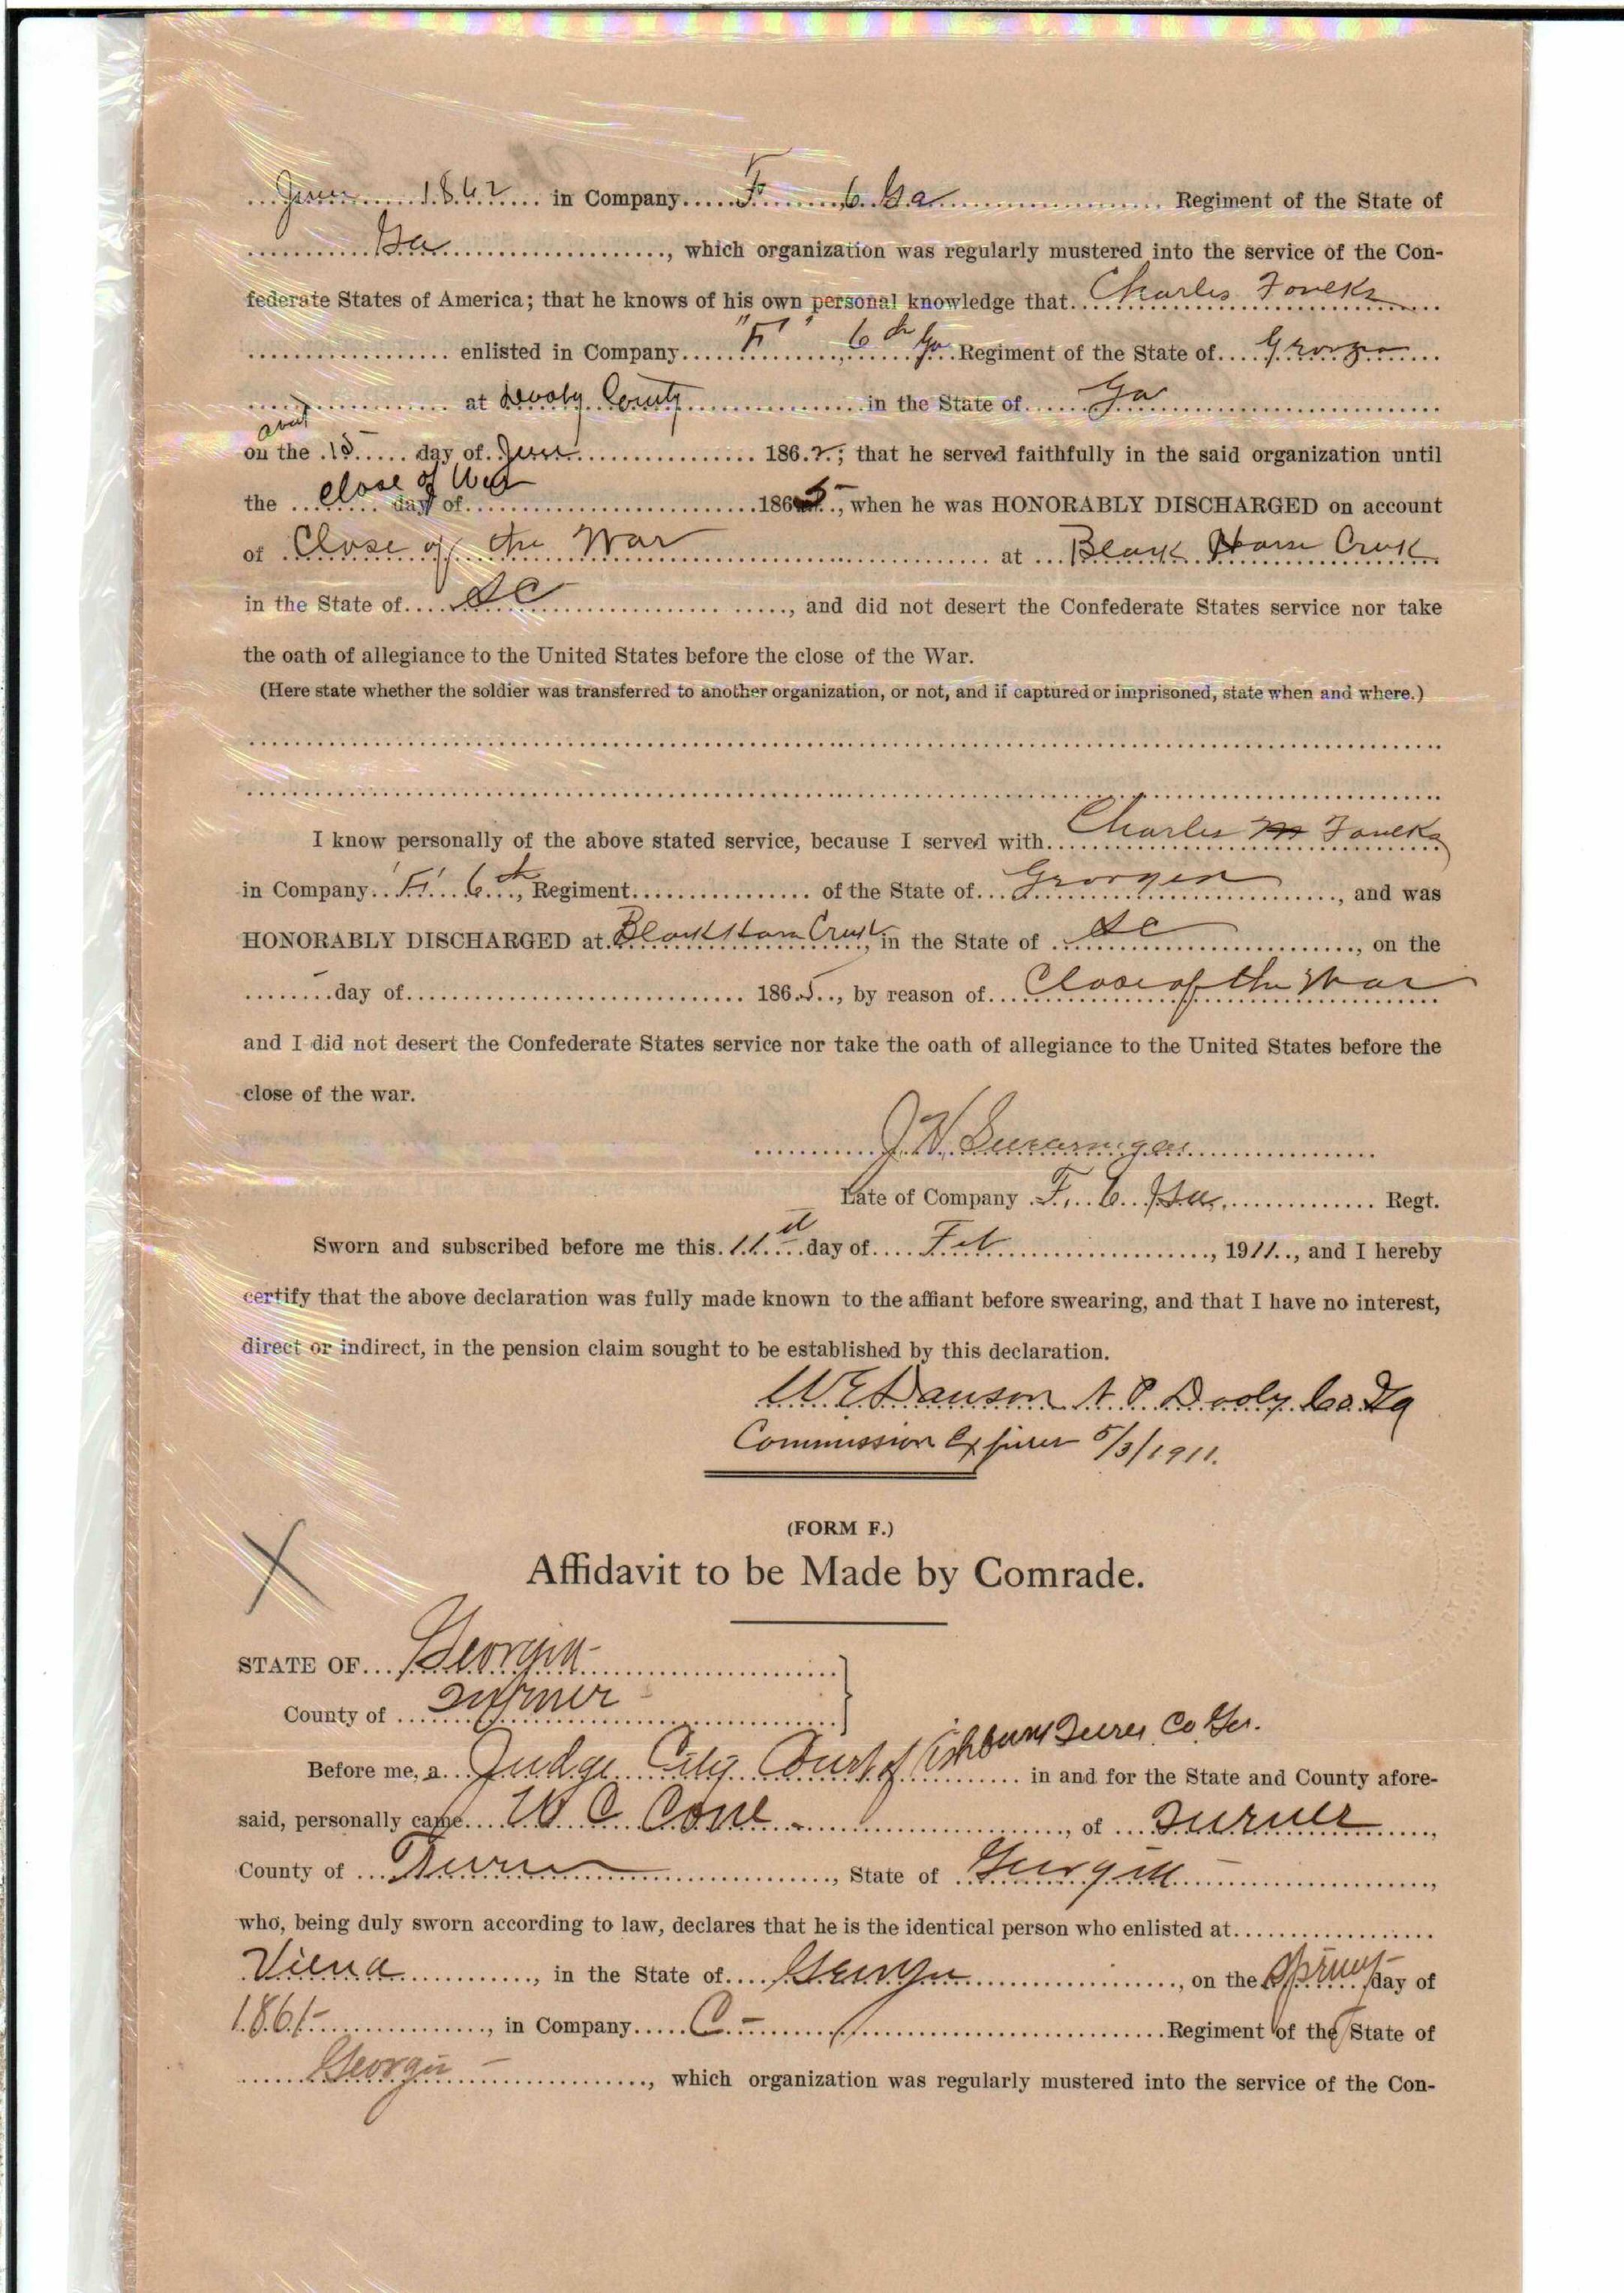 June 1862 in Company F 6 Ga Regiment of the State of
Ga, which organization was regularly mustered into the service of the Con-
federate States of America; that he knows of his own personal knowledge that Charles Foulks
enlisted in Company "F" 6th Ga Regiment of the State of Georgia
at Dooly County in the State of Ga
about
on the 15 day of June 1862; that he served faithfully in the said organization until
the close of War day of 1865, when he was HONORABLY DISCHARGED on account
of Close of the War at Black Creek
in the State of SC, and did not desert the Confederate States service nor take
the oath of allegiance to the United States before the close of the War.
(Here state whether the soldier was transferred to another organization, or not, and if captured or imprisoned, state when and where.)
I know personally of the above stated service, because I served with Charles M Foulks
in Company "F" 6th, Regiment of the State of Georgia, and was
HONORABLY DISCHARGED at Black Creek, in the State of SC, on the
day of 1865, by reason of Close of the War
and I did not desert the Confederate States service nor take the oath of allegiance to the United States before the
close of the war.
J H
Late of Company F. 6 Ga. Regt.
Sworn and subscribed before me this 11th day of Feb, 1911, and I hereby
certify that the above declaration was fully made known to the affiant before swearing, and that I have no interest,
direct or indirect, in the pension claim sought to be established by this declaration.
W E Dawson N. P. Dooly Co. Ga
Commission Expires 5/3/1911.
(FORM F.)
Affidavit to be Made by Comrade.
X
STATE OF Georgia
County of Turner
Before me, a Judge City Court of Ashburn Turner Co. Ga. in and for the State and County afore-
said, personally came W C Cone, of Turner,
County of Turner, State of Georgia,
who, being duly sworn according to law, declares that he is the identical person who enlisted at
Viena, in the State of Georgia, on the day of
1861, in Company C Regiment of the State of
Georgia, which organization was regularly mustered into the service of the Con-